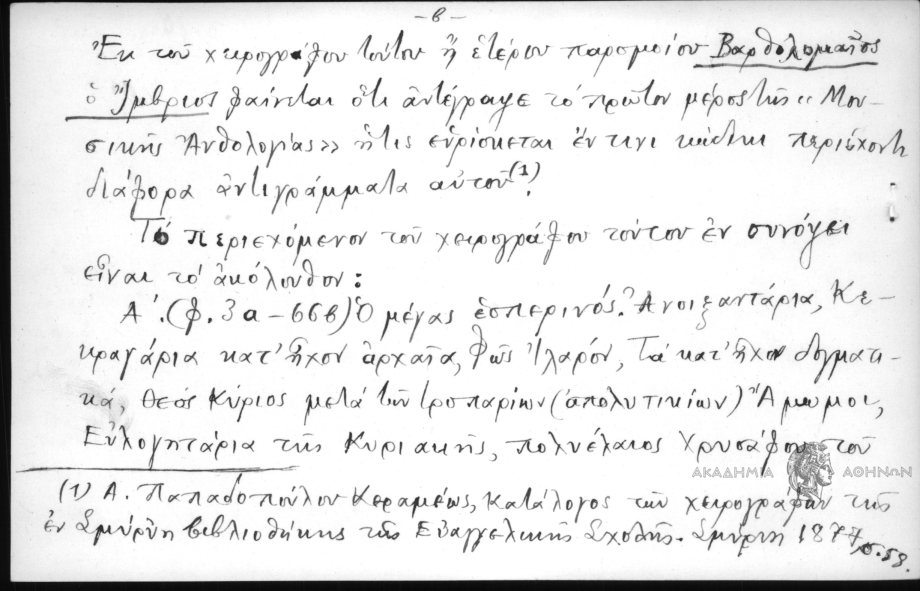 -β-
Ἐκ τοῦ χειρογράφου τούτου ἢ ἑτέρου παρομοίου Βαρθολομαῖος
ὁ Ἴμβριος φαίνεται ὅτι ἀντέγραψε τὸ πρῶτον μέρος τῆς «Μου-
σικῆς Ἀνθολογίας» ἥτις εὑρίσκεται ἔν τινι κώδικι περιέχοντι
διάφορα ἀντιγράμματα αὐτοῦ(1).
Τὸ περιεχόμενον τοῦ χειρογράφου τούτου ἐν συνόψει
εἶναι τὸ ἀκόλουθον:
Α΄. (φ. 3α-66β) Ὁ μέγας ἑσπερινός. Ἀνοιξαντάρια, Κε-
κραγάρια κατ' ἦχον ἀρχαῖα, Φῶς Ἱλαρόν, Τὰ κατ' ἦχον δογματι-
κά, Θεὸς Κύριος μετὰ τῶν τροπαρίων (ἀπολυτικίων) Ἄμωμοι,
Εὐλογητάρια τῆς Κυριακῆς, πολυέλαιος Χρυσάφου τοῦ
ΑΚΑΔΗΜΙΑ ΑΘΗΝΩΝ
(1) Α. Παπαδοπούλου Κεραμέως, Κατάλογος τῶν χειρογράφων τῆς
ἐν Σμύρνῃ βιβλιοθήκης τῆς Εὐαγγελικῆς Σχολῆς. Σμύρνη 1877, σ. 58.